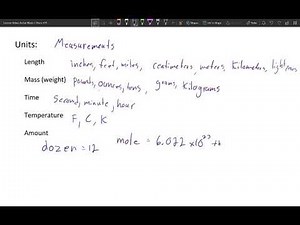 Units: Measurements
Length inches, feet, miles, centimeters, meters, Kilometers, lightyears
Mass (weight) pounds, ounces, tons, grams, kilograms
Time
Second, minute, hour
Temperature
F, C, K
Amount
dozen = 12 mole = 6.022 x10²³